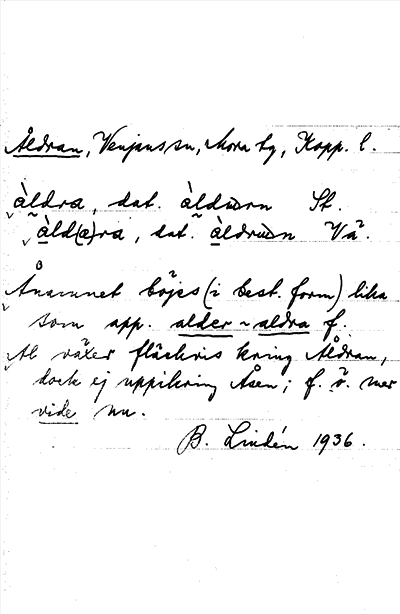 Åldran, Venjans sn, Mora tg, Kopp. l.
àldra, dat. àldùorn St.
àld(ə)ra, dat. àldrùon Vä.
Ånamnet böjes (i best. form) lika
som app. alder ~ aldra f.
Al växer fläckvis kring Åldran,
dock ej uppikring Åsen; f. ö. mer
vide nu.
B. Lindén 1936.